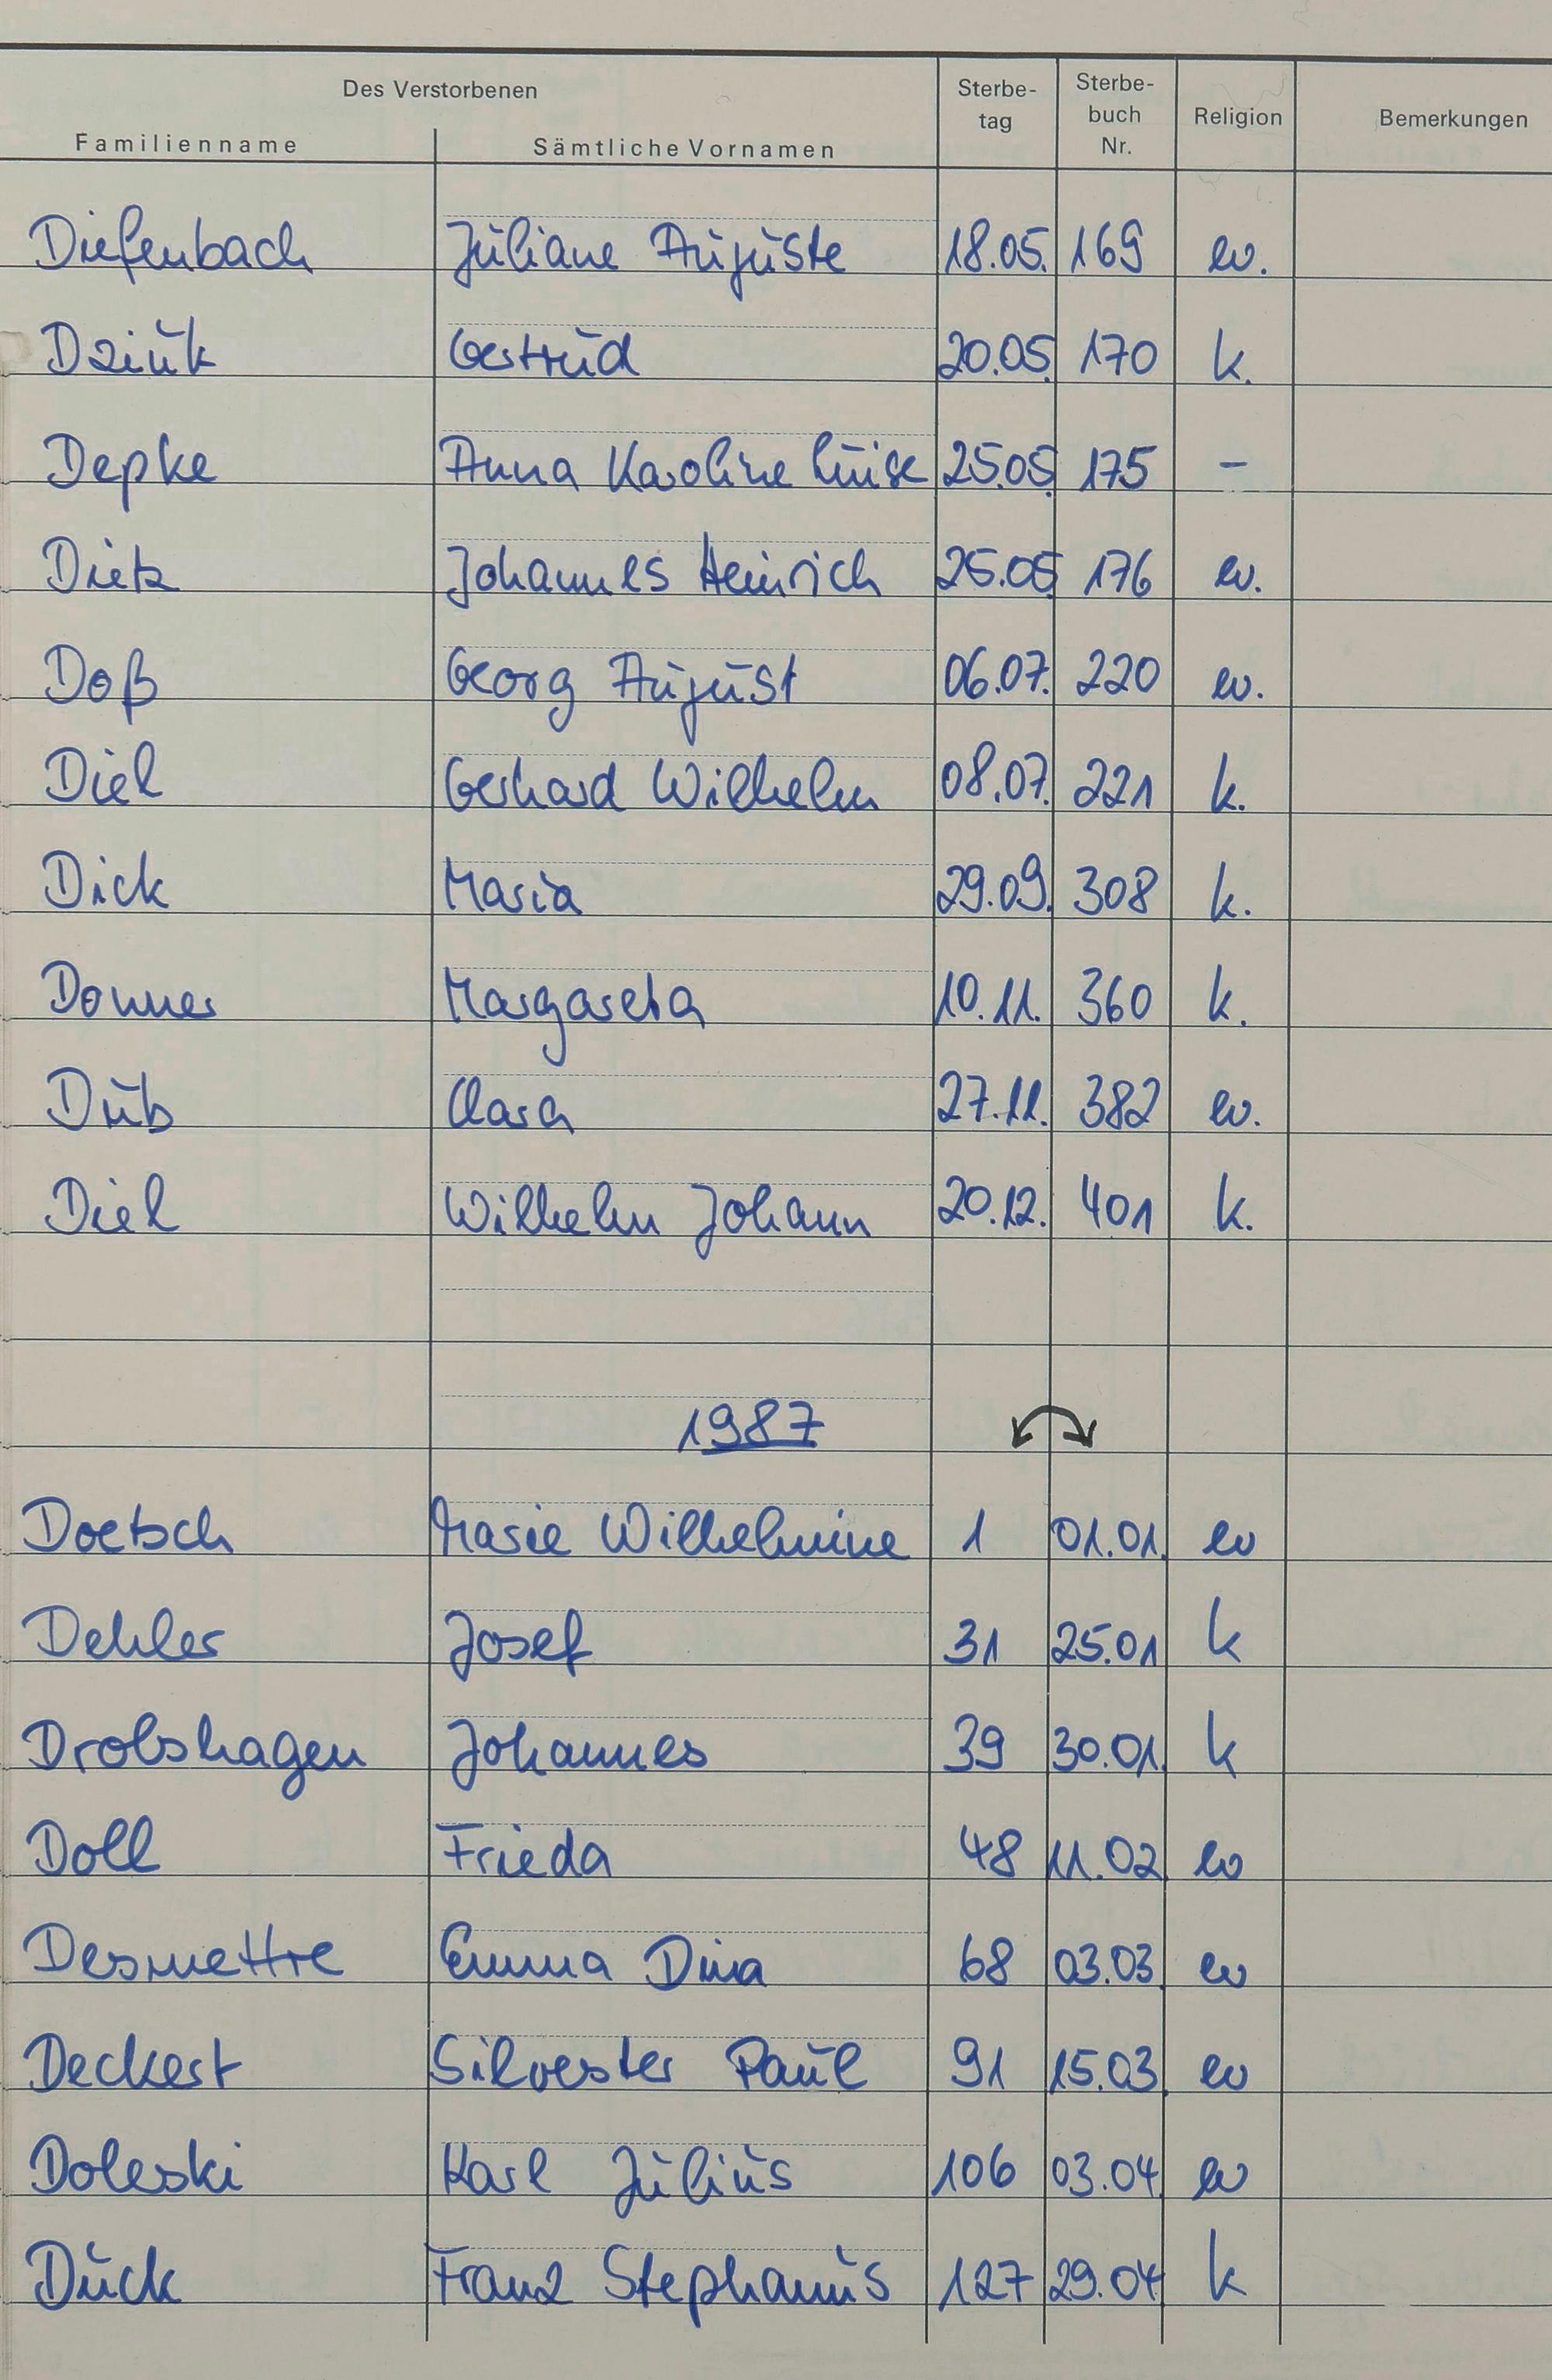 Des Verstorbenen
Familienname Sämtliche Vornamen Sterbe-tag Sterbe-buch Nr. Religion Bemerkungen
Diefenbach Juliane Auguste 18.05. 169 ev.
Dziuk Gertrud 20.05. 170 k.
Depke Anna Karoline Luise 25.05. 175 –
Dietz Johannes Heinrich 25.05 176 ev.
Doß Georg August 06.07. 220 ev.
Diel Gerhard Wilhelm 08.07. 221 k.
Dick Maria 29.09. 308 k.
Donner Margareta 10.11. 360 k.
Dub Clara 27.11. 382 ev.
Diel Wilhelm Johann 20.12. 401 k.
1987
Doetsch Marie Wilhelmine 1 01.01. ev
Dehler Josef 31 25.01 k
Drolshagen Johannes 39 30.01. k
Doll Frieda 48 11.02 ev
Desmettre Emma Dina 68 03.03. ev
Deckert Silvester Paul 91 15.03. ev
Doleski Karl Julius 106 03.04 ev
Dück Franz Stephanus 127 29.04 k